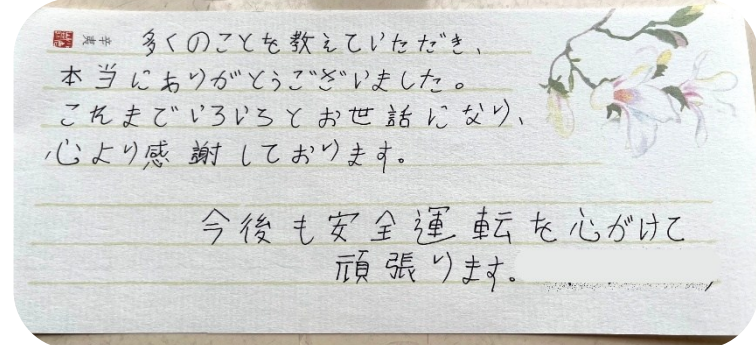 多くのことを教えていただき、
本当にありがとうございました。
これまでいろいろとお世話になり、
心より感謝しております。
今後も安全運転を心がけて
頑張ります。